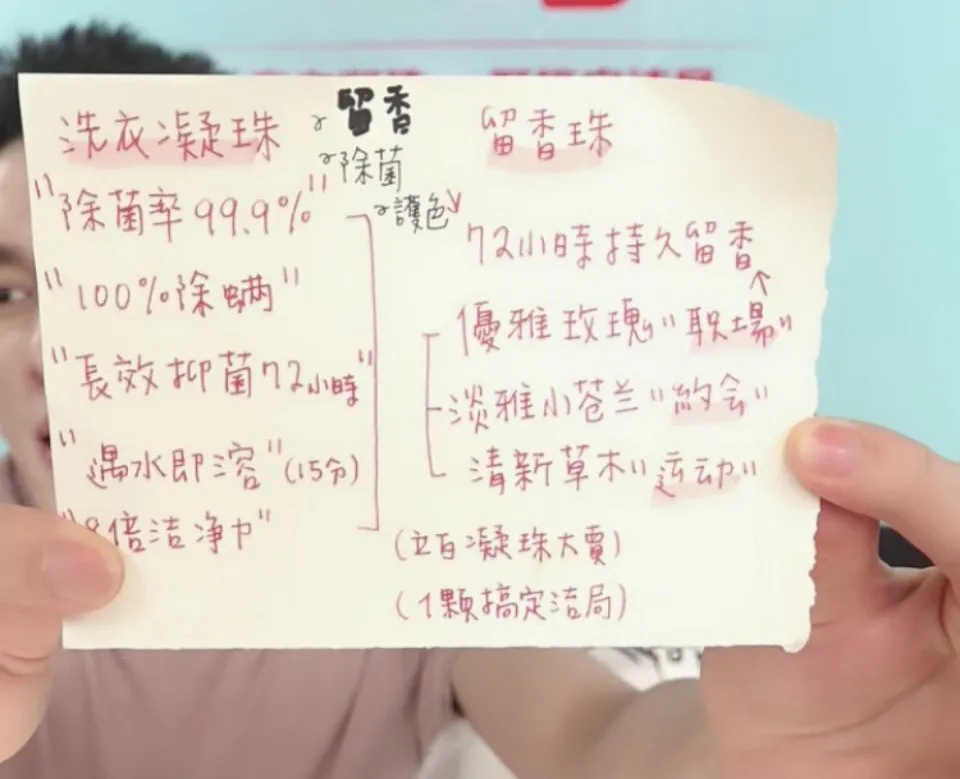 洗衣凝珠
留香
除菌
護色
"除菌率99.9%"
"100%除螨"
"長效抑菌72小時"
"遇水即溶"(15分)
"8倍洁净力"
留香珠
72小時持久留香
優雅玫瑰"职場"
淡雅小苍兰"約会"
清新草木"运动"
(立白凝珠大賣)
(1颗搞定洁局)